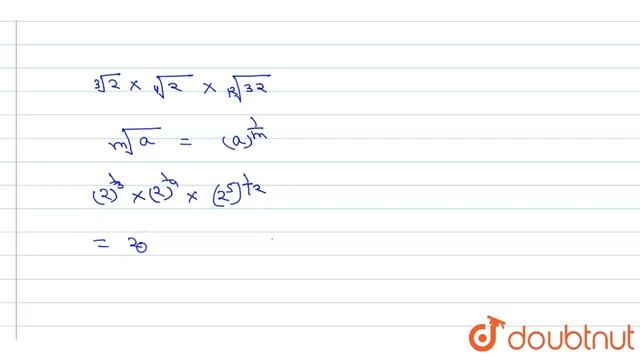 ∛2 × ∜2 × ¹²√32
ᵐ√a = (a)^(1/m)
(2)^(1/3) × (2)^(1/4) × (2^5)^(1/12)
= 2
doubtnut